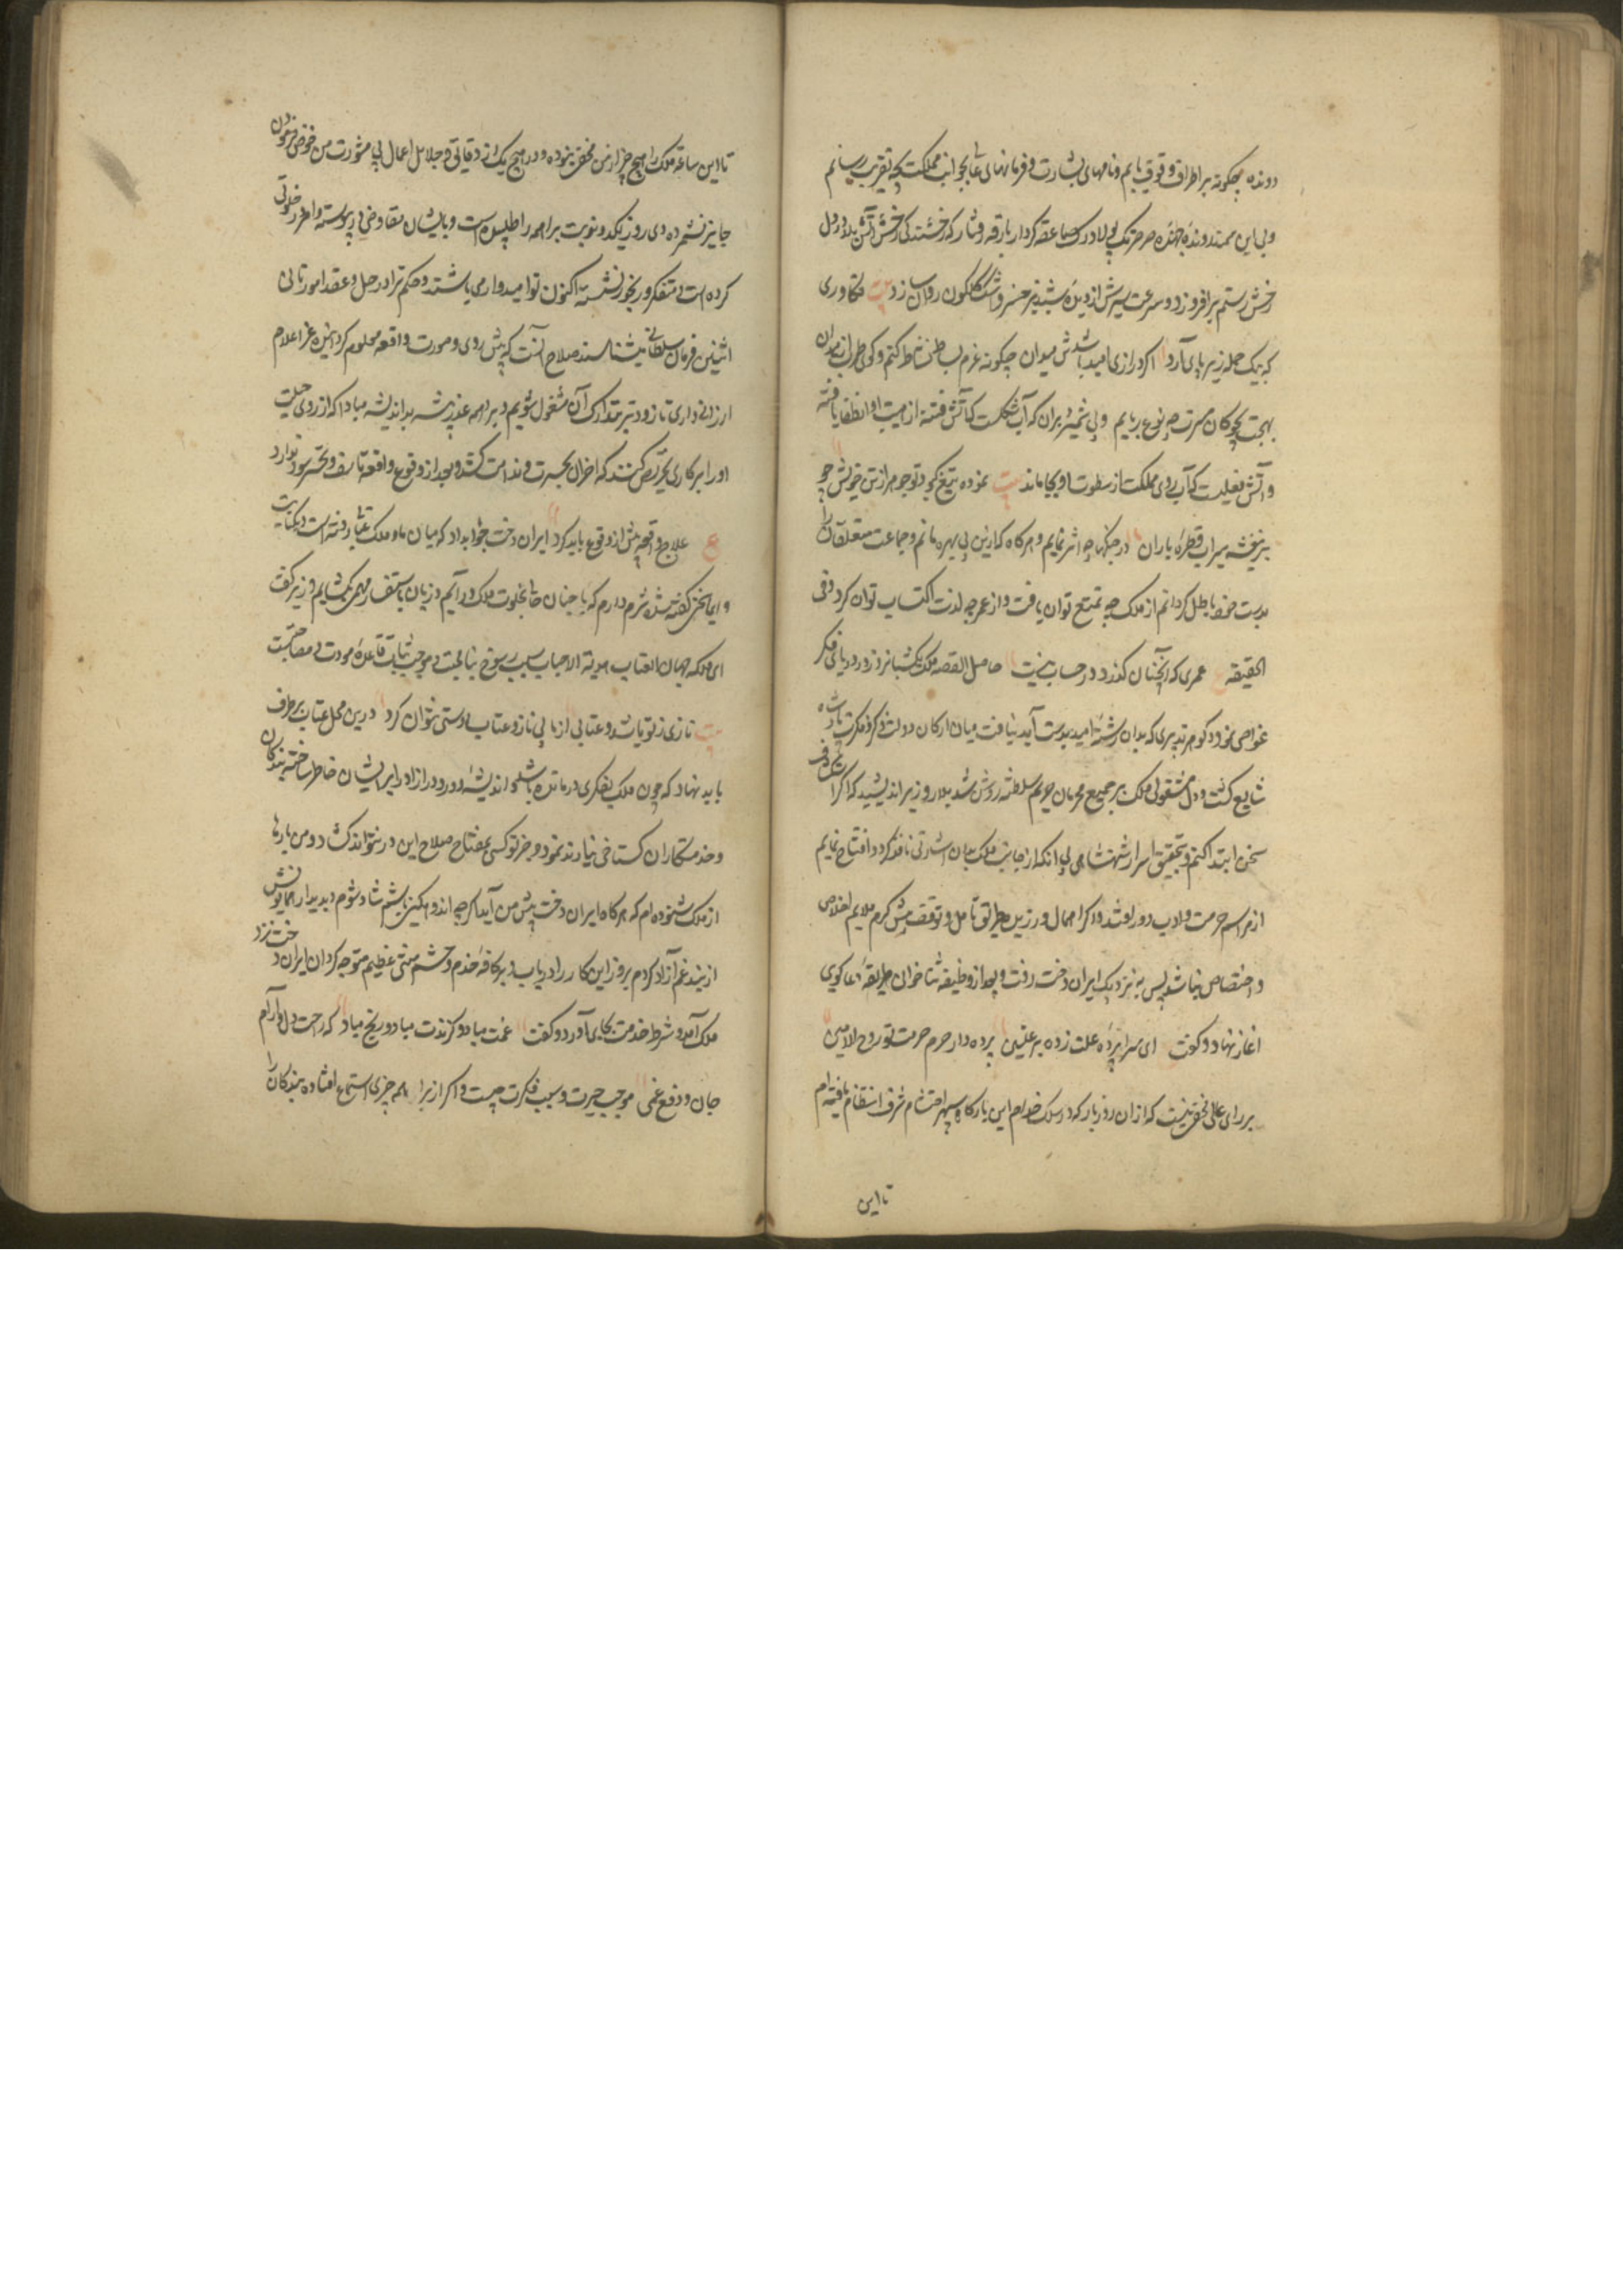 دونده چگونه بر اطراف وقوف یابم و نامهای بشارت و فرمانهای عالی بجوانب مملکت بچه تقریب رسانم
و بی این سمند دونده جهنده صرصرتک پولادرک صاعقه کردار بارقه وثار که رخشندکی رخش آتش بلا در دل
رخش رستم بر افروزد و سرعت سیرش از دیده شبدیز خسرو اشک گلگون روان سازد بیت تکاوری
که بیک حمله زیر پای آرد اگر درازی امید باشدش میدان چگونه عزم بساط نشاط کنم و گوی طرب از میدان
بهجت بچوگان مسرت بچه نوع ربایم و بی شمشیر بران که آبیست که آتش فتنه از هیبت او انطفا یافته
و آتش فعلیست که آب روی مملکت از سطوت او بجا ماند بیت نموده تیغ کبود تو جوهر از تن خویش چو
بر بنفشه سیراب قطره باران در جنگها چه اثر نمایم و هرگاه که ازین بی بهره مانم و جماعت متعلقان را
بدست خود باطل گردانم از ملک چه تمتع توان یافت و از عمر چه لذت اکتساب توان کرد و فی
الحقیقه ع عمری که آنچنان گذرد در حساب نیست حاصل القصه ملک یکشبانروز در دریای فکر
غواصی نمود و گوهر تدبیری که بدان رشته امید بدست آید نیافت میان ارکان دولت ذکر فکرت پادشاه
شایع گشت و دل مشغولی ملک بر جمیع محرمان حریم سلطنت روشن شد بلار وزیر اندیشید که اگر در استکشاف
سخن ابتدا کنم و تحقیق اسرار شهنشاهی بی آنکه از جانب ملک بدان اشارتی نافذ گردد افتتاح نمایم
از مراسم حرمت و ادب دور افتد و اگر اهمال ورزیده طریق تامل و توقف پیش گیرم ملایم اخلاص
و اختصاص نباشد پس به نزدیک ایران دخت رفت و بعد از وظیفه ثناخوان طریقه دعاگوی
آغاز نهاد و گفت ای سراپرده عفت زده بر علیین پرده دار حرم حرمت تو روح الامین
بر رای عالی مخفی نیست که از ان روز باز که در سلک خدام این بارگاه سپهر احتشام شرف انتظام یافته ام
تا این
تا این ساعة ملک را هیچ چیز از من مخفی نبوده و در هیچ یک از دقایق و جلایل اعمال بی مشورت من خوض فرمودن
جایز نشمرده دی روز یکدو نوبت براهمه را طلبیده است و با ایشان مفاوضتی در پیوسته و امروز خلوتی
کرده است متفکر و رنجور نشسته اکنون تو امیدوار می باشند و حکم ترا در حل و عقد امور ثانی
اثنین فرمان سلطانی میشناسند صلاح آنست که پیش روی و صورت واقعه معلوم کرده بنده را اعلام
ارزانی داری تا زودتر بتدارک آن مشغول شویم و براهمه غدر پیشه بد اندیشه مبادا که از روی حیلت
او را بر کاری تحریص کنند که آخر ان بحسرت و ندامت کشد و بعد از وقوع واقعه تاسف و تحسر سود ندارد
ع علاج واقعه پیش از وقوع باید کرد ایران دخت جواب داد که میان ما و ملک عتابی رفته است و حکایت
و ایما سخن گفته شده شرم دارم که با چنان حال بخلوت ملک درآیم و زبان باستفسار مهمی بگشایم وزیر گفت
ای ملکه جهان العتاب هدیة الاحباب سبب رسوخ بنا محبت و موجب ثبات قاعده مودت و مصاحبت
بیت نازی ز تو باشد و عتابی از ما بی ناز و عتاب دوستی نتوان کرد درین محل عتاب بر طرف
باید نهاد که چون ملک بفکری درمانده باشد و اندیشه دور و دراز در ایشان خاطر ساخته بندگان
و خدمتکاران گستاخی نیارند نمود و جز تو کسی بمفتاح صلاح این در نتواند گشاد و من بارها
از ملک شنوده ام که هرگاه ایران دخت پیش من آید اگر چه اندوهگین باشم شاد شوم و بدیدار همایونش
از بند غم آزاد گردم برو و این کار را دریاب و بر کافه خدم و حشم منتی عظیم متوجه گردان ایران دخت نزد
ملک آمد و شرط خدمت بجای آورد و گفت غمت مباد و گزندت مباد و رنج مباد که راحت دل و آرام
جان و دفع غمی موجب حیرت و سبب فکرت چیست و اگر از براهمه چیزی استماع افتاده بندگان را